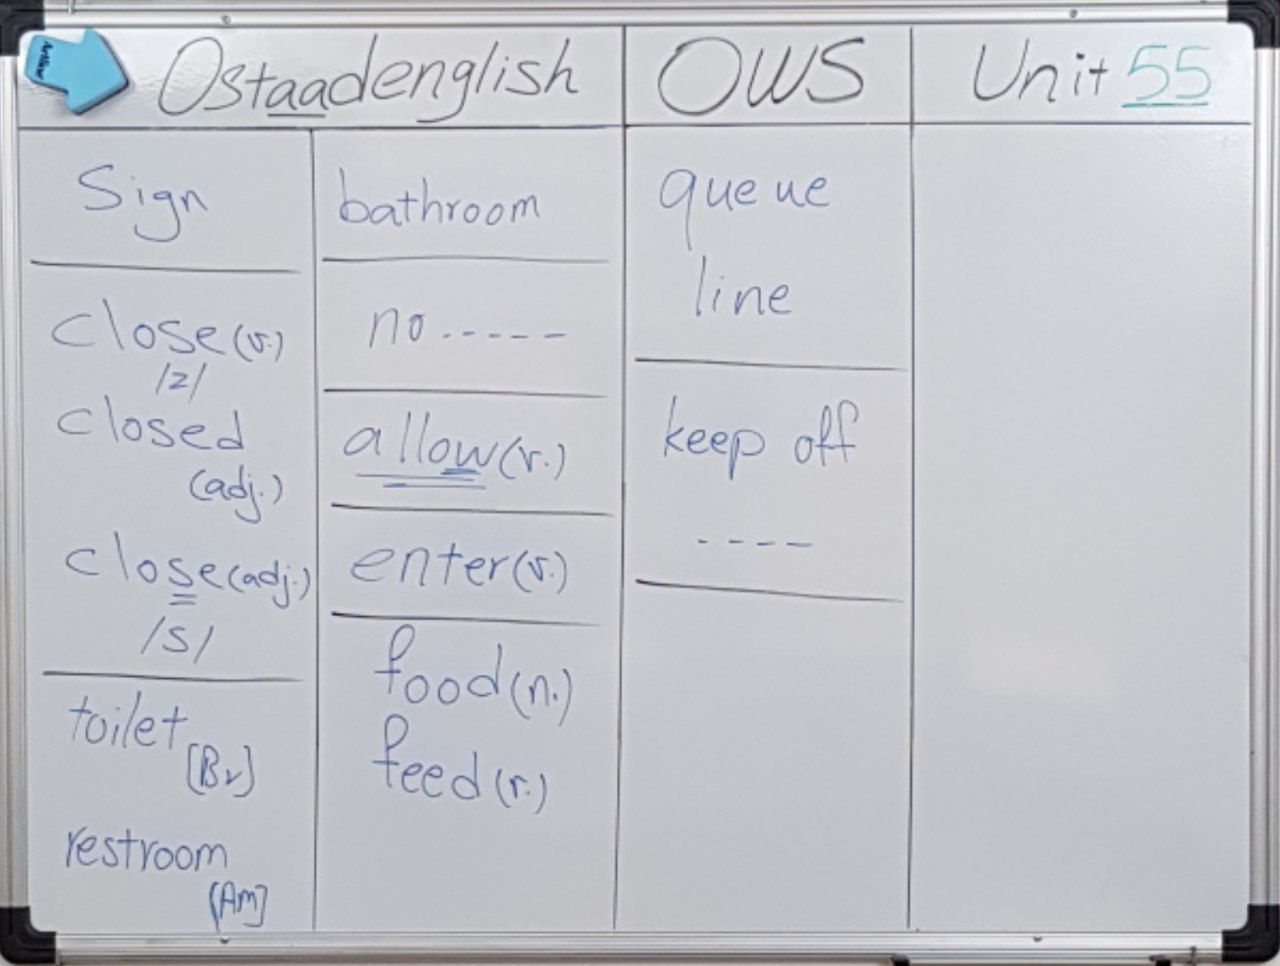 Ostaadenglish
OWS
Unit 55
Sign
close (v.)
/z/
closed
(adj.)
close (adj.)
/s/
toilet
[Br]
restroom
[Am]
bathroom
no -----
allow (v.)
enter (v.)
food (n.)
feed (v.)
queue
line
keep off
----